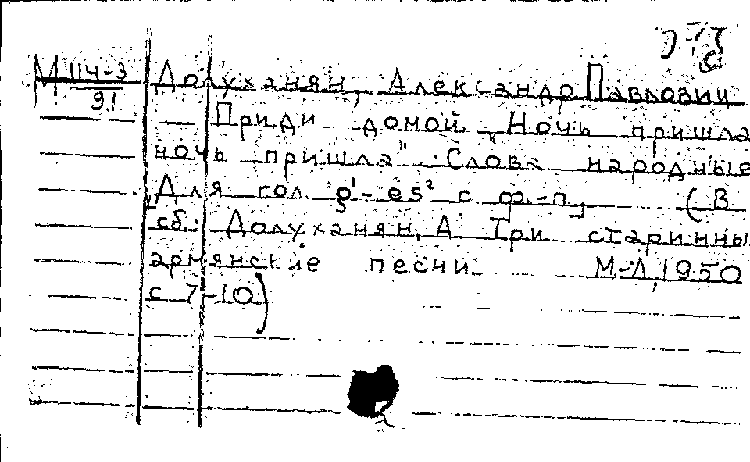 М 114-3
31
Долуханян, Александр Павлович
Приди домой „Ночь пришла
ночь пришла". Слова народные
Для гол. g¹-es² с ф-п. (В
сб.: Долуханян, А. Три старинны
армянские песни. М-Л, 1950
с 7-10)